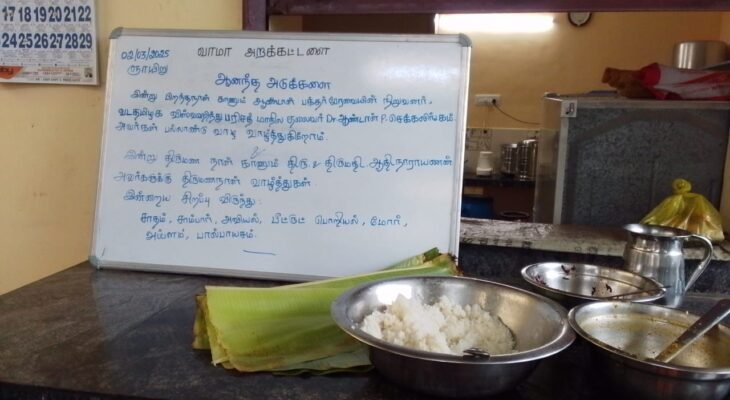 17 18 19 20 21 22
24 25 26 27 28 29
02/03/2025 வாமா அறக்கட்டளை
ஞாயிறு
ஆனந்த அடுக்களை
இன்று பிறந்தநாள் காணும் ஆண்டாள் பக்தர் பேரவையின் நிறுவனர்,
வடதமிழக விஸ்வஹிந்து பரிசத் மாநில தலைவர் Dr ஆண்டாள் P. சொக்கலிங்கம்
அவர்கள் பல்லாண்டு வாழ வாழ்த்துகிறோம்.
இன்று திருமண நாள் காணும் திரு & திருமதி. ஆதிநாராயணன்
அவர்களுக்கு திருமணநாள் வாழ்த்துகள்.
இன்றைய சிறப்பு விருந்து:
சாதம், சாம்பார், அவியல், பீட்ரூட் பொறியல், மோர்,
அப்பளம், பால்பாயசம்.